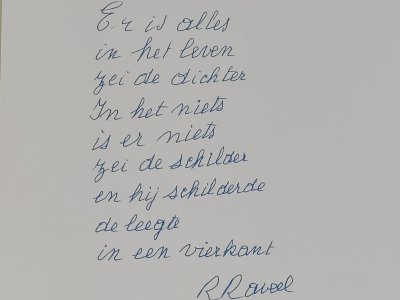 Er is alles
in het leven
zei de dichter
In het niets
is er niets
zei de schilder
en hij schilderde
de leegte
in een vierkant
R Raveel